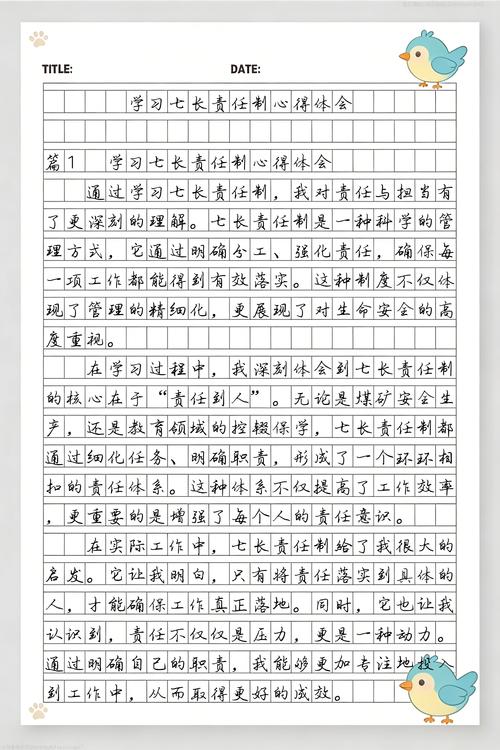 TITLE: DATE:
学习七长责任制心得体会
篇1 学习七长责任制心得体会
通过学习七长责任制，我对责任与担当有
了更深刻的理解。七长责任制是一种科学的管
理方式，它通过明确分工、强化责任，确保每
一项工作都能得到有效落实。这种制度不仅体
现了管理的精细化，更展现了对生命安全的高
度重视。
在学习过程中，我深刻体会到七长责任制
的核心在于“责任到人”。无论是煤矿安全生
产，还是教育领域的控辍保学，七长责任制都
通过细化任务、明确职责，形成了一个环环相
扣的责任体系。这种体系不仅提高了工作效率
，更重要的是增强了每个人的责任意识。
在实际工作中，七长责任制给了我很大的
启发。它让我明白，只有将责任落实到具体的
人，才能确保工作真正落地。同时，它也让我
认识到，责任不仅仅是压力，更是一种动力。
通过明确自己的职责，我能够更加专注地投入
到工作中，从而取得更好的成效。